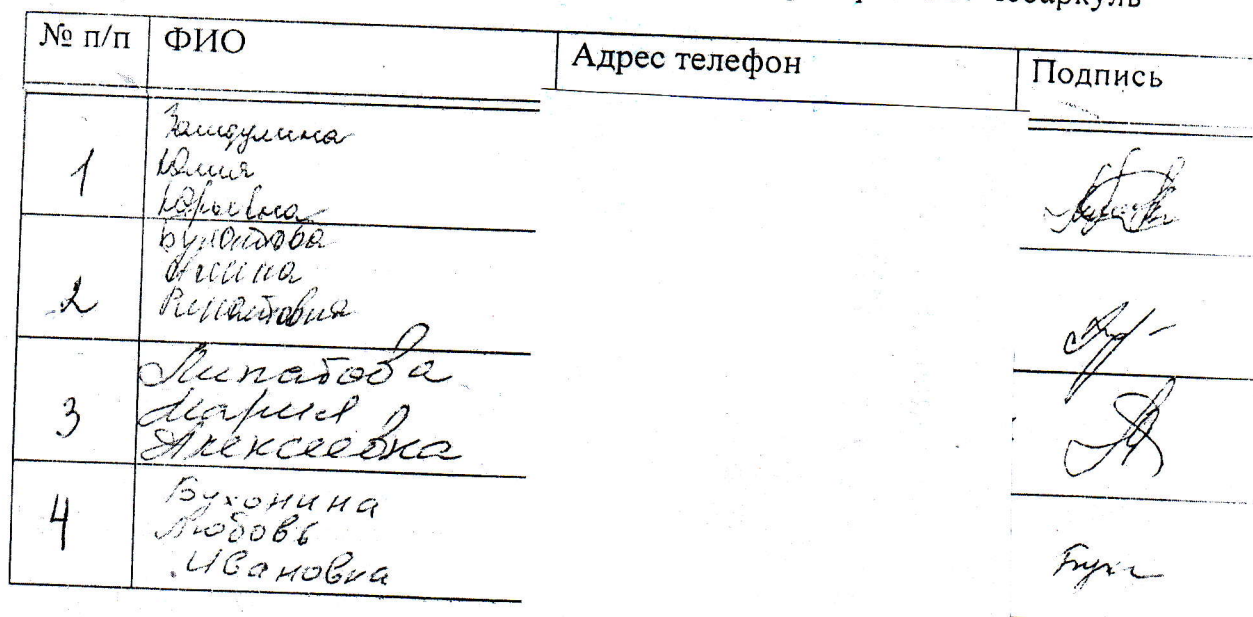 № п/п ФИО Адрес телефон Подпись
1
Юлия
Юрьевна
Булатова
2
Ринатовна
Липатова
3 Мария
Алексеевна
Бухонина
4 Любовь
Ивановна